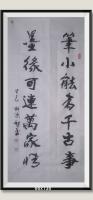 筆小能書千古事
墨緣可連萬家情